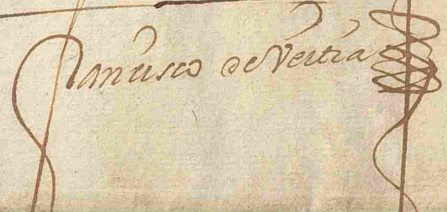 Francisco de Vertiz